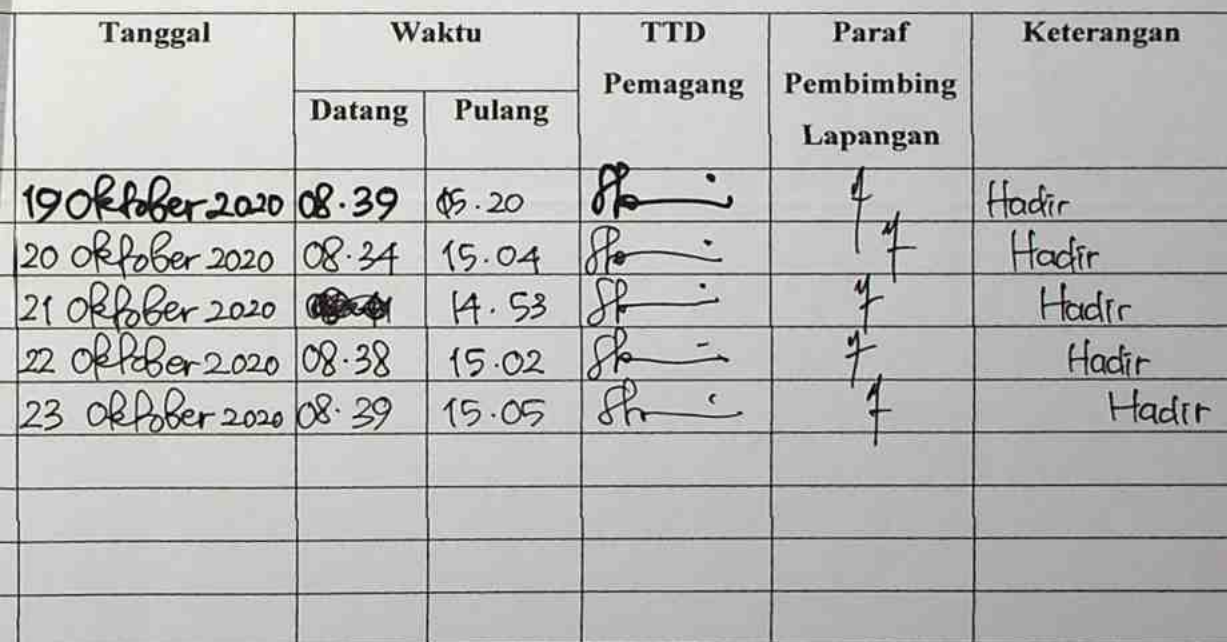 Tanggal Waktu TTD Pemagang Paraf Pembimbing Lapangan Keterangan
Datang Pulang
19 Oktober 2020 08.39 15.20 Hadir
20 Oktober 2020 08.34 15.04 Hadir
21 Oktober 2020 14.53 Hadir
22 Oktober 2020 08.38 15.02 Hadir
23 Oktober 2020 08.39 15.05 Hadir